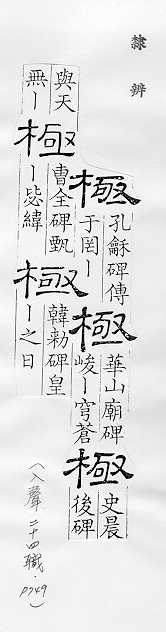 隸辨
極
孔龢碑傳
于罔丨
極
華山廟碑
峻丨穹蒼
極
史晨
後碑
與天
無丨
極
曹全碑甄
丨毖緯
極
韓勑碑皇
丨之日
(入聲 二十四職・P749)